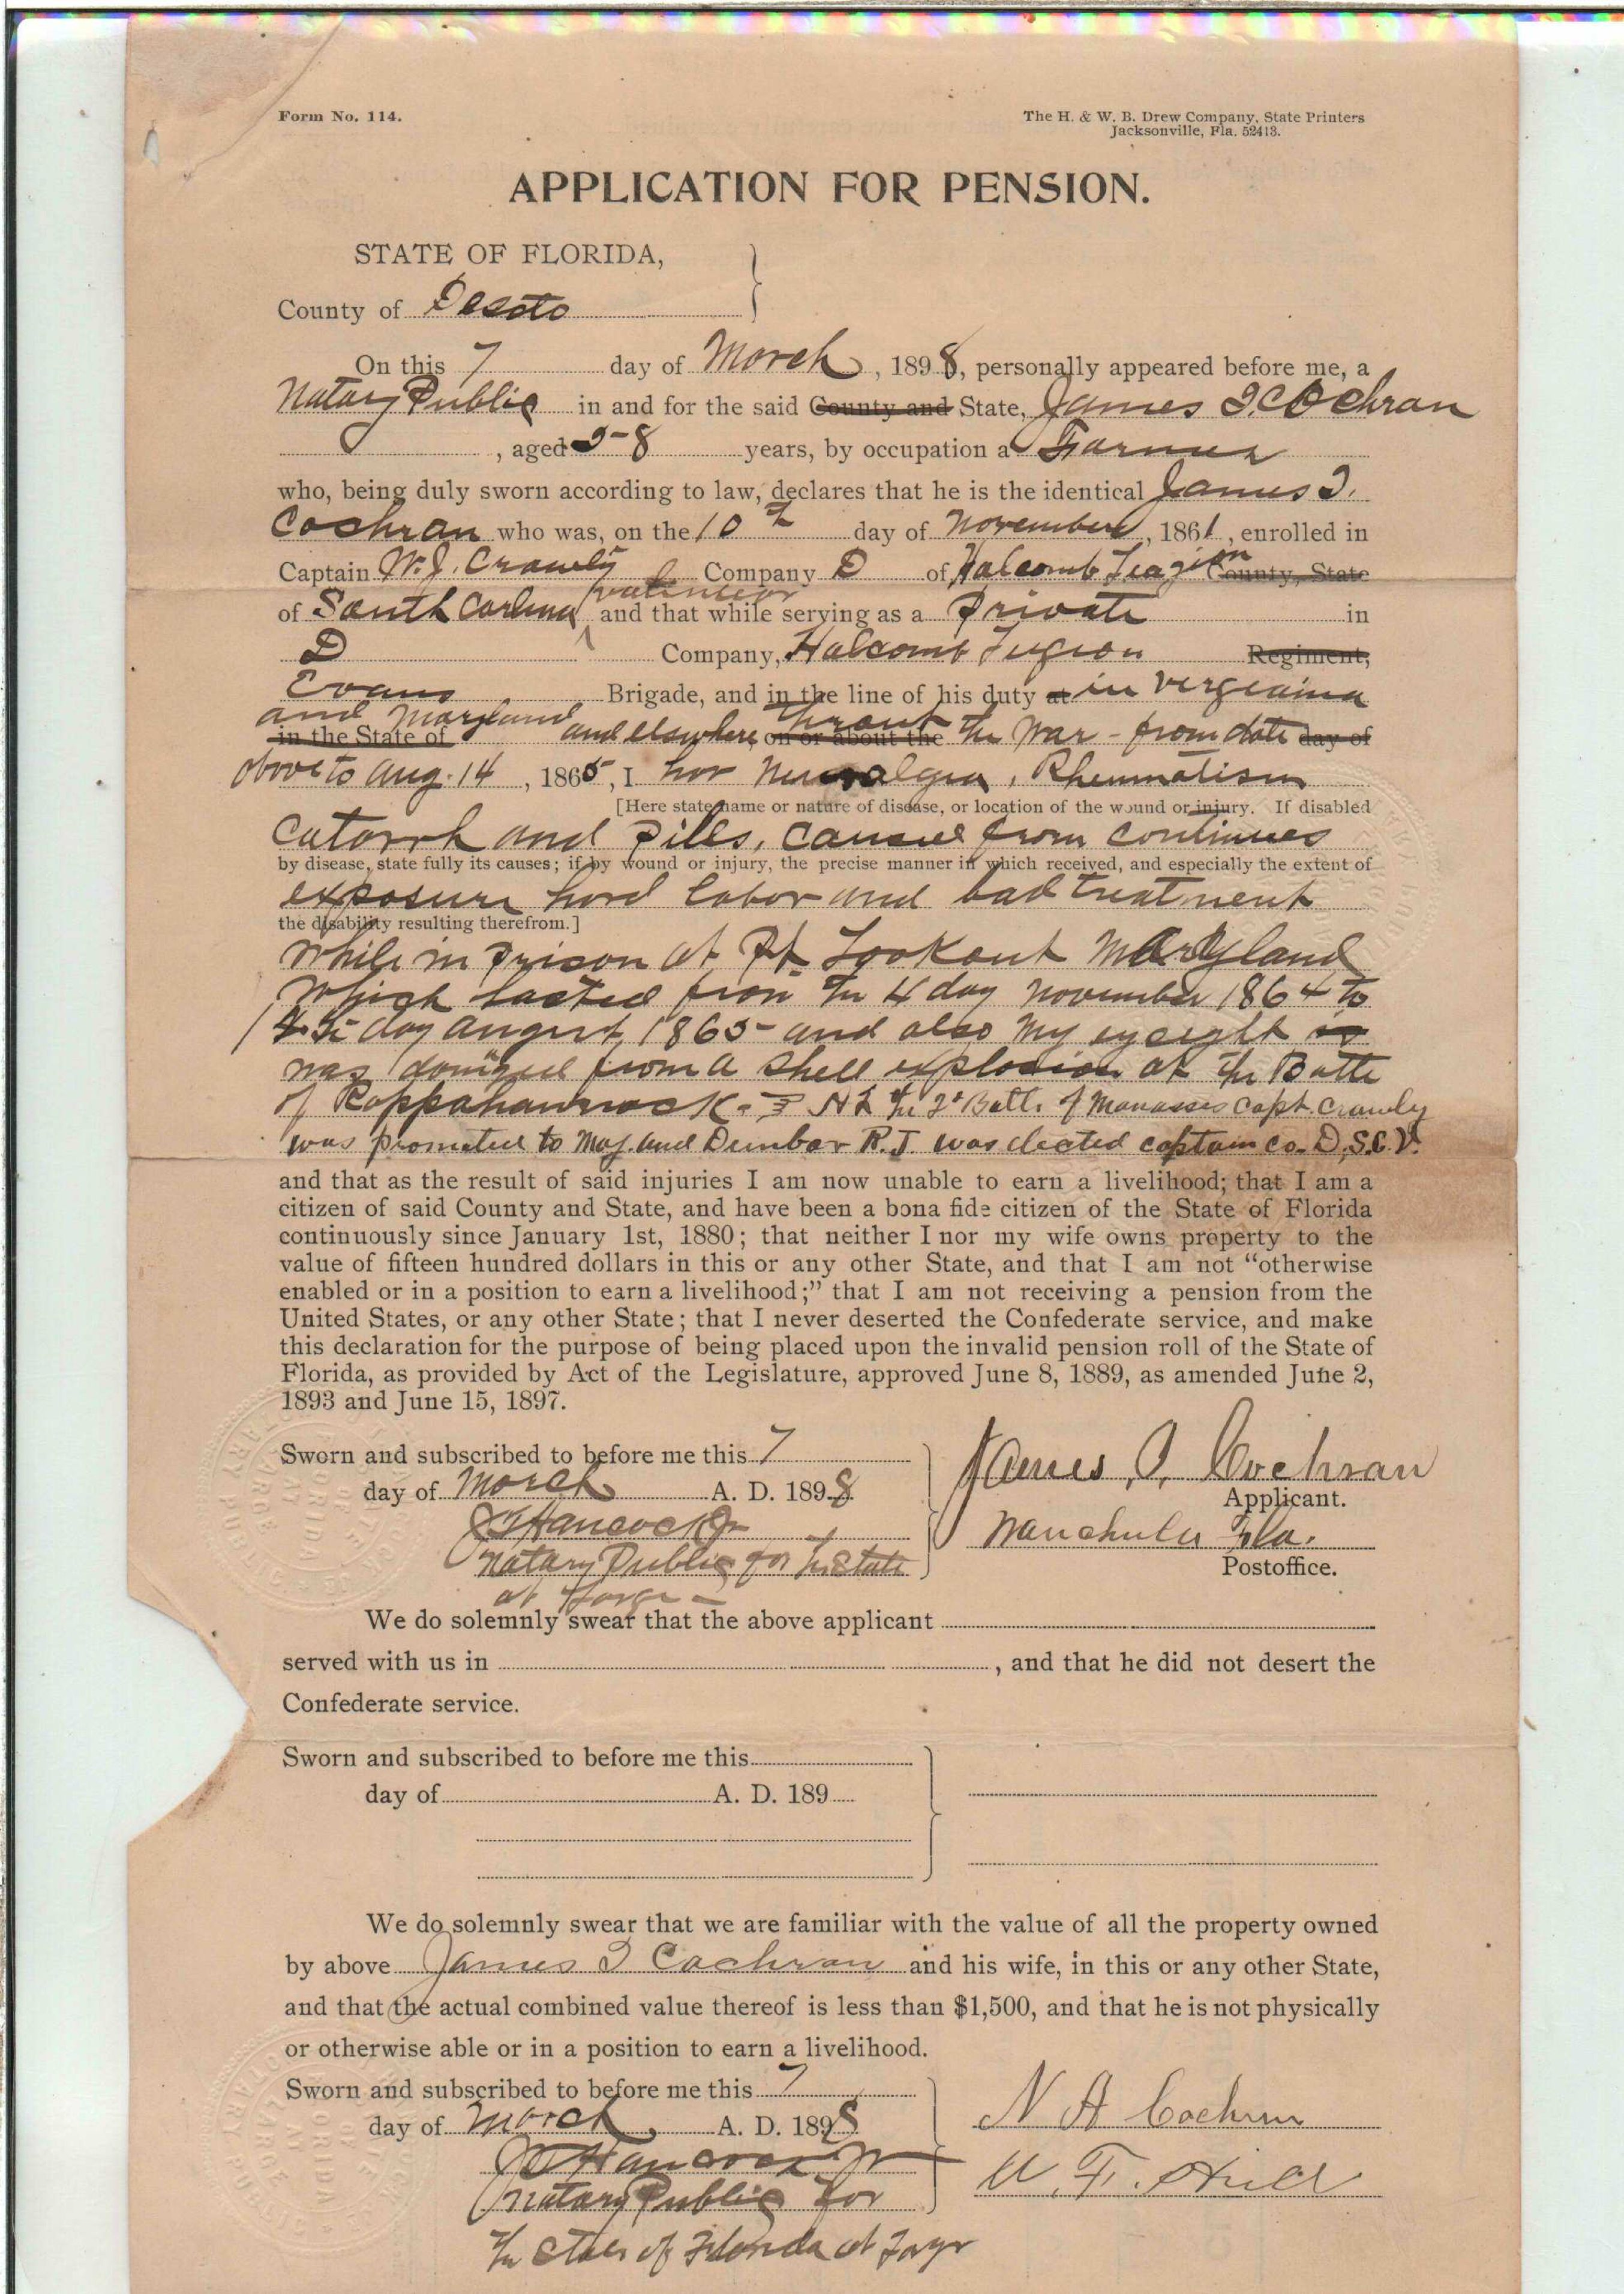 Form No. 114.
The H. & W. B. Drew Company, State Printers
Jacksonville, Fla. 52413.
APPLICATION FOR PENSION.
STATE OF FLORIDA,
County of Desoto
On this 7 day of March, 1898, personally appeared before me, a
Notary Public in and for the said County and State, James I. Cochran
, aged 58 years, by occupation a Farmer
who, being duly sworn according to law, declares that he is the identical James I.
Cochran who was, on the 10th day of November, 1861, enrolled in
Captain W. J. Crawly Company D of Halcomb Leagion County, State
of South Carlina volinteor and that while serving as a Private in
D Company, Halcomb Legion Regiment,
Evans Brigade, and in the line of his duty at in Vergiaina
and Maryland in the State of and elsewhere on or about the thraut the War - from date day of
above to Aug. 14, 1865, I hor Neuralgia, Rheumatism
[Here state name or nature of disease, or location of the wound or injury. If disabled
Catorrh and Pills, caused from continues
by disease, state fully its causes; if by wound or injury, the precise manner in which received, and especially the extent of
exposure hord labor and bad treatment
the disability resulting therefrom.]
while in Prison at Pt Lookout Maryland
which lasted from the 4 day November 1864 to
14th day August, 1865 and also my eyesight is
was domiged from a shell explosion at the Battle
of Rappahannock. At the 2d Battl. of Manasses Capt. Crawly
was promoted to Maj. and Dunbar R. J. was elected captain co. D, S.C.V.
and that as the result of said injuries I am now unable to earn a livelihood; that I am a
citizen of said County and State, and have been a bona fide citizen of the State of Florida
continuously since January 1st, 1880; that neither I nor my wife owns property to the
value of fifteen hundred dollars in this or any other State, and that I am not "otherwise
enabled or in a position to earn a livelihood;" that I am not receiving a pension from the
United States, or any other State; that I never deserted the Confederate service, and make
this declaration for the purpose of being placed upon the invalid pension roll of the State of
Florida, as provided by Act of the Legislature, approved June 8, 1889, as amended June 2,
1893 and June 15, 1897.
Sworn and subscribed to before me this 7
day of March A. D. 1898
James I. Cochran
Applicant.
J T Hancock Jr
Wauchula Fla.
Notary Public for the State
Postoffice.
at Large
We do solemnly swear that the above applicant
served with us in , and that he did not desert the
Confederate service.
Sworn and subscribed to before me this
day of A. D. 189
We do solemnly swear that we are familiar with the value of all the property owned
by above James I Cochran and his wife, in this or any other State,
and that the actual combined value thereof is less than $1,500, and that he is not physically
or otherwise able or in a position to earn a livelihood.
Sworn and subscribed to before me this 7
day of March A. D. 1898
N A Cochran
Hancock Jr
W. F.
Notary Public for
the State of Florida at Large